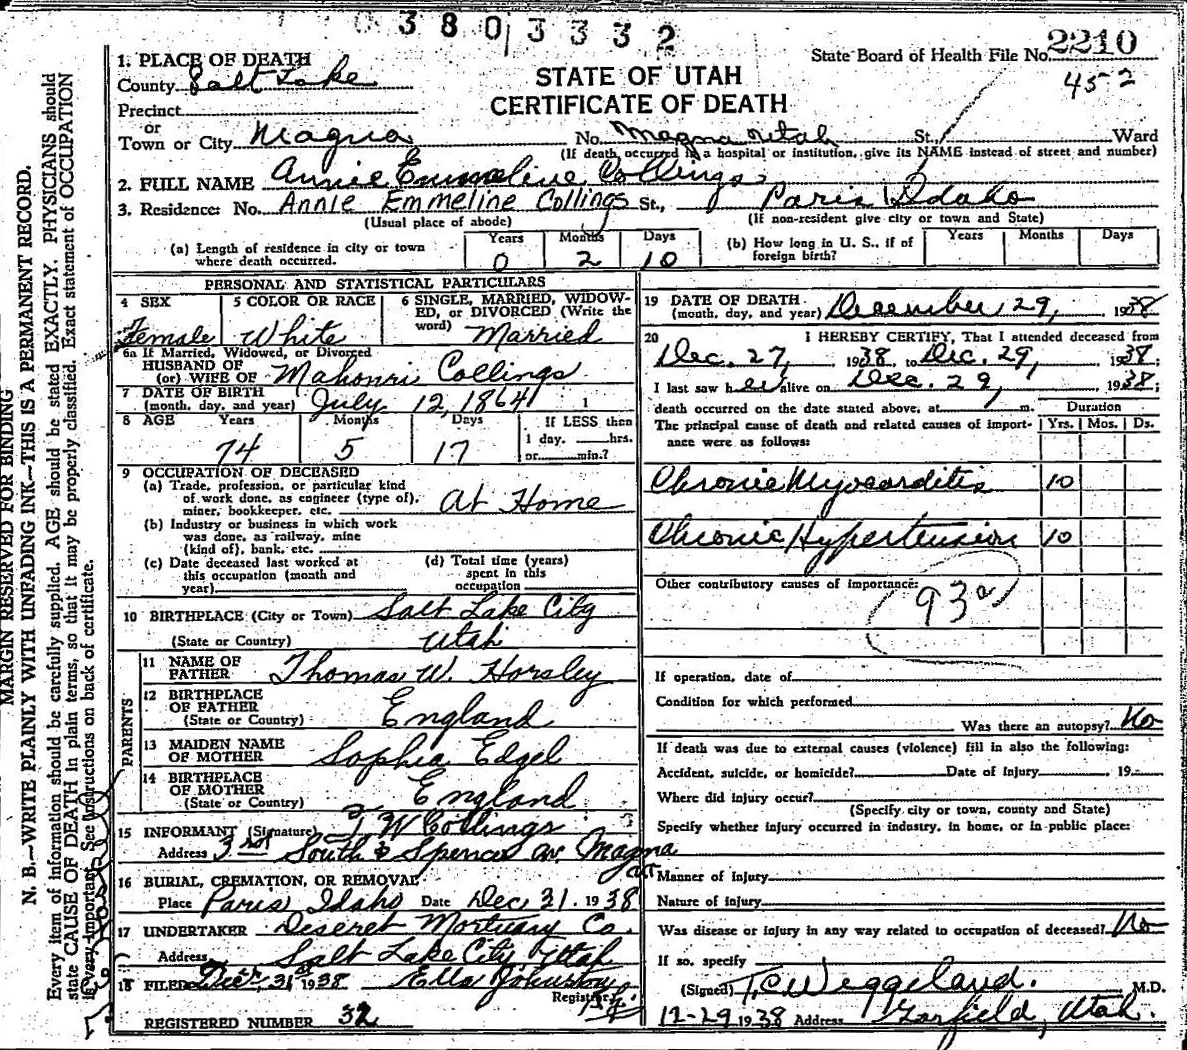 3803332
State Board of Health File No. 2210
452
STATE OF UTAH
CERTIFICATE OF DEATH
1. PLACE OF DEATH
County Salt Lake
Precinct
or
Town or City Magna No. Magna Utah St., Ward
(If death occurred in a hospital or institution, give its NAME instead of street and number)
2. FULL NAME Annie Emmeline Collings
3. Residence: No. Annie Emmeline Collings St., Paris Idaho
(Usual place of abode) (If non-resident give city or town and State)
(a) Length of residence in city or town where death occurred. Years 0 Months 2 Days 10
(b) How long in U. S., if of foreign birth? Years Months Days
PERSONAL AND STATISTICAL PARTICULARS
4 SEX Female
5 COLOR OR RACE White
6 SINGLE, MARRIED, WIDOWED, OR DIVORCED (Write the word) Married
6a If Married, Widowed, or Divorced
HUSBAND OF
(or) WIFE OF Mahonri Collings
7 DATE OF BIRTH
(month, day, and year) July 12, 1864
8 AGE Years 74 Months 5 Days 17
If LESS than
1 day, hrs.
or min.?
9 OCCUPATION OF DECEASED
(a) Trade, profession, or particular kind
of work done, as engineer (type of),
miner, bookkeeper, etc. At Home
(b) Industry or business in which work
was done, as railway, mine
(kind of), bank, etc.
(c) Date deceased last worked at
this occupation (month and
year)
(d) Total time (years)
spent in this
occupation
10 BIRTHPLACE (City or Town) Salt Lake City
(State or Country) Utah
PARENTS
11 NAME OF
FATHER Thomas W. Horsley
12 BIRTHPLACE
OF FATHER
(State or Country) England
13 MAIDEN NAME
OF MOTHER Sophia Edgel
14 BIRTHPLACE
OF MOTHER
(State or Country) England
15 INFORMANT (Signature) T W Collings
Address 3rd South & Spencer av. Magna
16 BURIAL, CREMATION, OR REMOVAL
Place Paris, Idaho Date Dec 31. 1938
17 UNDERTAKER Deseret Mortuary Co.
Address Salt Lake City, Utah
18 FILED Dec 31st 1938 Ella Johnston
Registrar
REGISTERED NUMBER 32
19 DATE OF DEATH
(month, day, and year) December 29, 1938
20 I HEREBY CERTIFY, That I attended deceased from
Dec. 27, 1938, to Dec. 29, 1938.
I last saw her alive on Dec. 29, 1938;
death occurred on the date stated above, at m.
The principal cause of death and related causes of importance were as follows:
Duration
Yrs. Mos. Ds.
Chronic Myocarditis 10
Chronic Hypertension 10
Other contributory causes of importance:
93a
If operation, date of
Condition for which performed
Was there an autopsy? No
If death was due to external causes (violence) fill in also the following:
Accident, suicide, or homicide? Date of Injury 19
Where did injury occur?
(Specify city or town, county and State)
Specify whether injury occurred in industry, in home, or in public place:
Manner of injury
Nature of injury
Was disease or injury in any way related to occupation of deceased? No
If so, specify
(Signed) T.C. Weggeland. M.D.
12-29 1938 Address Garfield, Utah.
MARGIN RESERVED FOR BINDING
N. B.—WRITE PLAINLY WITH UNFADING INK—THIS IS A PERMANENT RECORD.
Every item of information should be carefully supplied. AGE should be stated EXACTLY. PHYSICIANS should
state CAUSE OF DEATH in plain terms, so that it may be properly classified. Exact statement of OCCUPATION
is very important. See instructions on back of certificate.